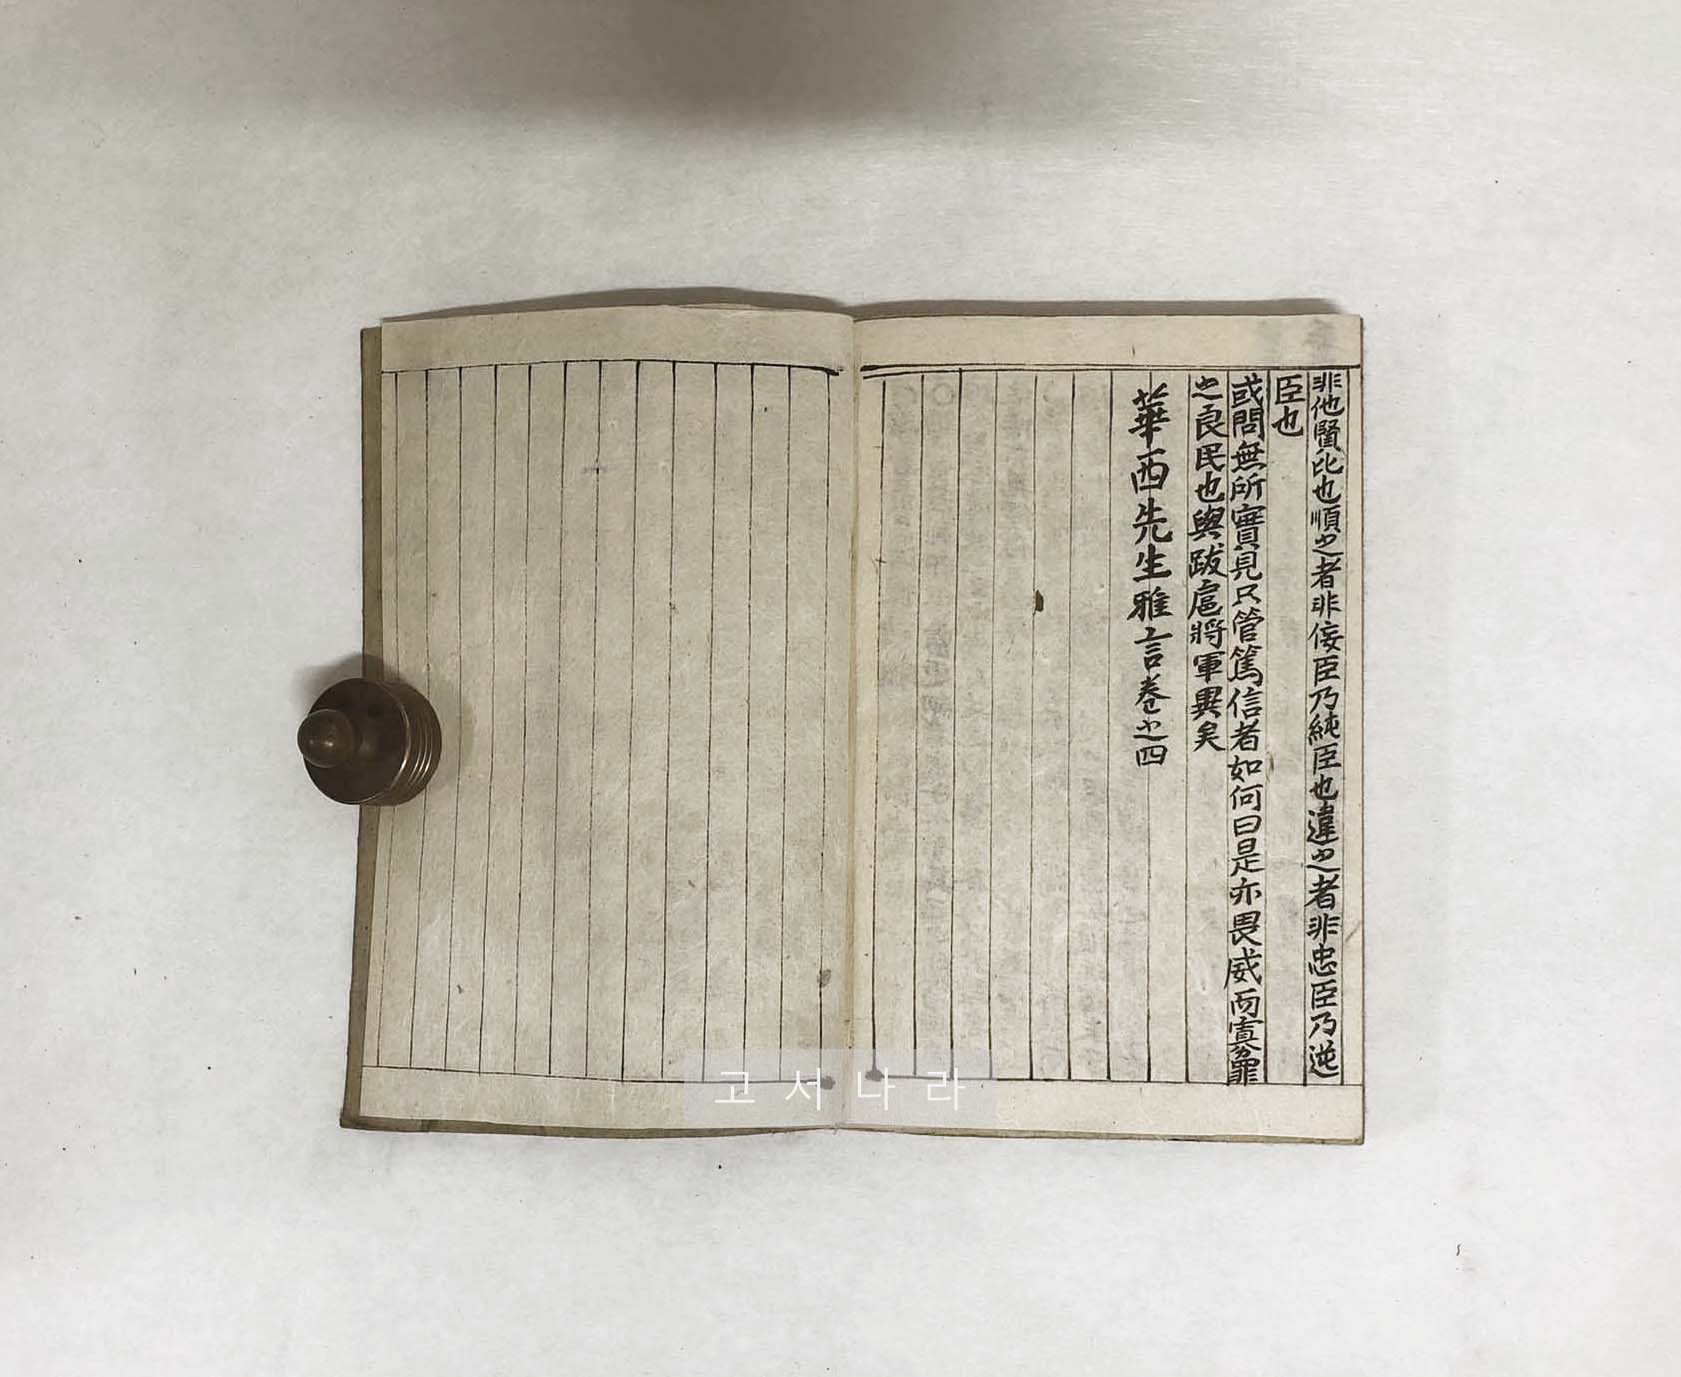 非他賢比也順之者非侫臣乃純臣也違之者非忠臣乃逆
臣也
或問無所實見只管篤信者如何曰是亦畏威而寡罪
之良民也與跋扈將軍異矣
華西先生雅言卷之四
고서나라